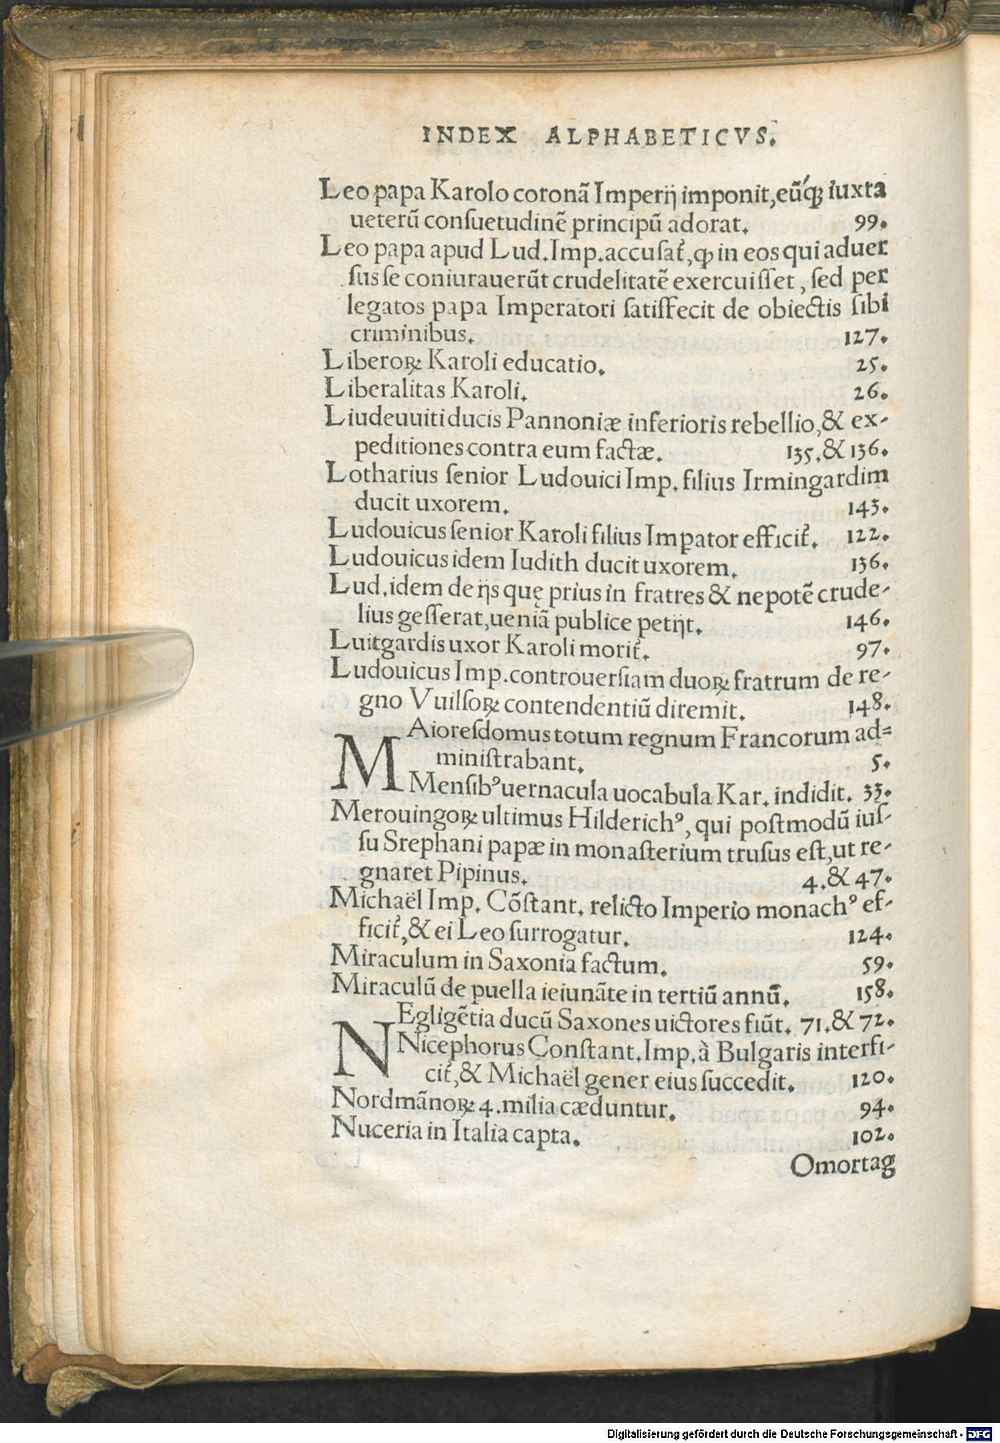 INDEX ALPHABETICVS.
Leo papa Karolo coronā Imperij imponit, eūq́ꝫ iuxta
ueterū conſuetudinē principū adorat. 99.
Leo papa apud Lud. Imp. accuſat᷑, ꝙ in eos qui aduer
ſus ſe coniurauerūt crudelitatē exercuiſſet, ſed per
legatos papa Imperatori ſatiſfecit de obiectis ſibi
criminibus. 127.
Liberoꝝ Karoli educatio. 25.
Liberalitas Karoli. 26.
Liudeuuiti ducis Pannoniæ inferioris rebellio, & ex-
peditiones contra eum factæ. 135. & 136.
Lotharius ſenior Ludouici Imp. filius Irmingardim
ducit uxorem. 143.
Ludouicus ſenior Karoli filius Impator efficit᷑. 122.
Ludouicus idem Iudith ducit uxorem. 136.
Lud. idem de ijs quę prius in fratres & nepotē crude-
lius geſſerat, ueniā publice petijt. 146.
Luitgardis uxor Karoli morit᷑. 97.
Ludouicus Imp. controuerſiam duoꝝ fratrum de re-
gno Vuilſoꝝ contendentiū diremit. 148.
MAioreſdomus totum regnum Francorum ad=
miniſtrabant. 5.
Menſibꝰ uernacula uocabula Kar. indidit. 33.
Merouingoꝝ ultimus Hilderichꝰ, qui poſtmodū iuſ-
ſu Srephani papæ in monaſterium truſus eſt, ut re-
gnaret Pipinus. 4. & 47.
Michaël Imp. Cōſtant. relicto Imperio monachꝰ ef-
ficit᷑, & ei Leo ſurrogatur. 124.
Miraculum in Saxonia factum. 59.
Miraculū de puella ieiunāte in tertiū annū. 158.
NEgligētia ducū Saxones uictores fiūt. 71. & 72.
Nicephorus Conſtant. Imp. à Bulgaris interfi-
cit᷑, & Michaël gener eius ſuccedit. 120.
Nordmānoꝝ 4. milia cæduntur. 94.
Nuceria in Italia capta. 102.
Omortag
Digitalisierung gefördert durch die Deutsche Forschungsgemeinschaft - DFG